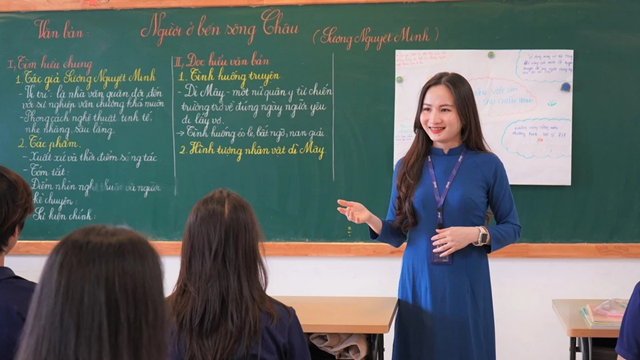 Văn bản: Người ở bến sông Châu (Sương Nguyệt Minh)
I, Tìm hiểu chung
1. Tác giả Sương Nguyệt Minh
- Vị trí: là nhà văn quân đội, đến
với sự nghiệp văn chương khá muộn
- Phong cách nghệ thuật: tinh tế,
nhẹ nhàng, sâu lắng.
2. Tác phẩm.
- Xuất xứ và thời điểm sáng tác
- Tóm tắt:
- Điểm nhìn nghệ thuật và người
kể chuyện:
- Sự kiện chính:
II, Đọc hiểu văn bản
1. Tình huống truyện
- Dì Mây - một nữ quân y từ chiến
trường trở về đúng ngày người yêu
đi lấy vợ.
→ Tình huống éo le, bất ngờ, nan giải
2. Hình tượng nhân vật dì Mây.